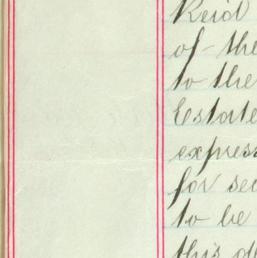 Reid
of the
to the
Estate
express
for sec
to be
this d